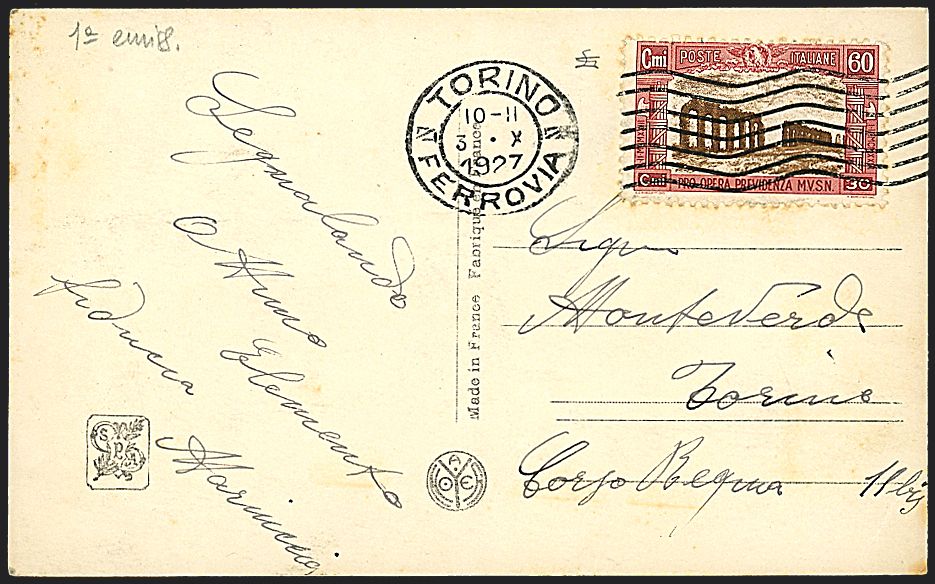 1ª emiss.
Segnalando
ottimo
Elemento
fiducia
TORINO
10-11
3 · X
1927
FERROVIA
N N
Cmi POSTE ITALIANE 60
Cmi PRO OPERA PREVIDENZA M.V.S.N. 30
Made in France Fabriqué en France
Sigra
Monteverde
Torino
Corso Regina 11 bis
A